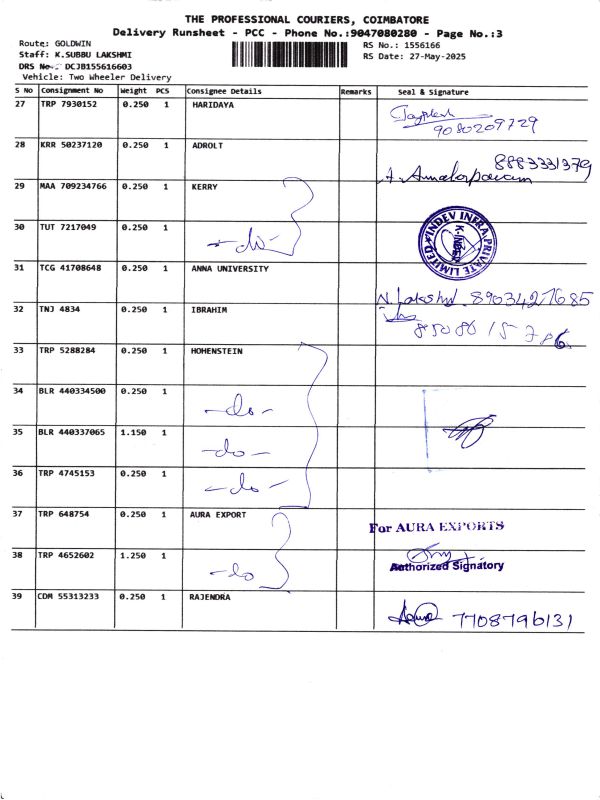 THE PROFESSIONAL COURIERS, COIMBATORE
Delivery Runsheet - PCC - Phone No.:9047080280 - Page No.:3
Route: GOLDWIN
RS No.: 1556166
Staff: K.SUBBU LAKSHMI
RS Date: 27-May-2025
DRS No.: DCJB155616603
Vehicle: Two Wheeler Delivery
S No Consignment No Weight PCS Consignee Details Remarks Seal & Signature
27 TRP 7930152 0.250 1 HARIDAYA
9080209729
28 KRR 50237120 0.250 1 ADROLT
8883331379
29 MAA 709234766 0.250 1 KERRY
30 TUT 7217049 0.250 1 -do-
INDEV INFRA PRIVATE LIMITED
31 TCG 41708648 0.250 1 ANNA UNIVERSITY
N. Lakshmi 8903427685
32 TNJ 4834 0.250 1 IBRAHIM
8508015786
33 TRP 5288284 0.250 1 HOHENSTEIN
34 BLR 440334500 0.250 1 -do-
35 BLR 440337065 1.150 1 -do-
36 TRP 4745153 0.250 1 -do-
37 TRP 648754 0.250 1 AURA EXPORT
For AURA EXPORTS
38 TRP 4652602 1.250 1 -do-
Authorized Signatory
39 CDM 55313233 0.250 1 RAJENDRA
7708796131